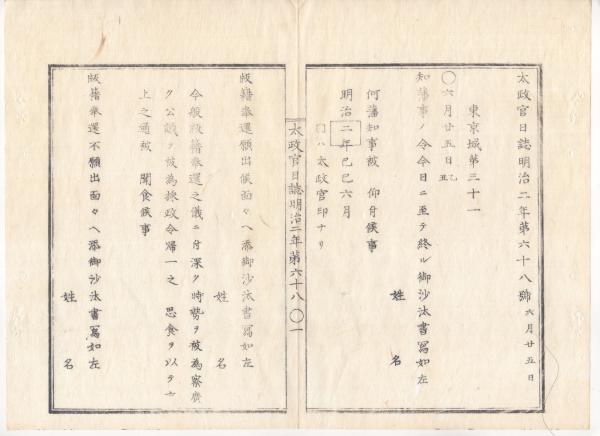 太政官日誌明治二年第六十八號 六月廿五日
東京城第三十一
○六月廿五日乙丑
知藩事ノ令今日ニ至テ終ル御沙汰書寫如左
姓名
何藩知事被 仰付候事
明治二年己巳六月
□ハ太政官印ナリ
太政官日誌明治二年第六十八 ○一
版籍奉還願出候面々ヘ添御沙汰書寫如左
姓名
今般版籍奉還之儀ニ付深ク時勢ヲ被為察廣
ク公議ヲ被為採政令歸一之 思食ヲ以テ言
上之通被 聞食候事
版籍奉還不願出面々ヘ添御沙汰書寫如左
姓名